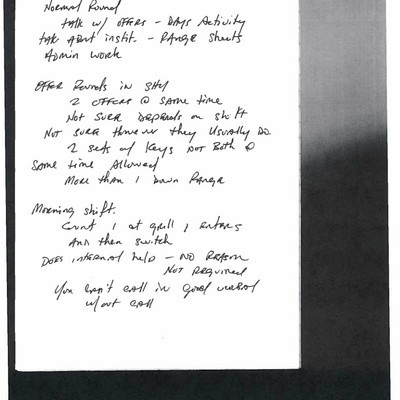 Normal Round
talk w/ offers - Days Activity
talk about instit. - Range sheets
Admin work
Offer Rounds in SHU
2 offers @ same time
Not sure depends on shift
Not sure they usually do
2 sets of keys not both @
same time allowed
More than 1 down range
Morning shift.
Count 1 at grill 1 enters
And then switch
Does internal help - No reason
Not required
You can't call in good
w/out call